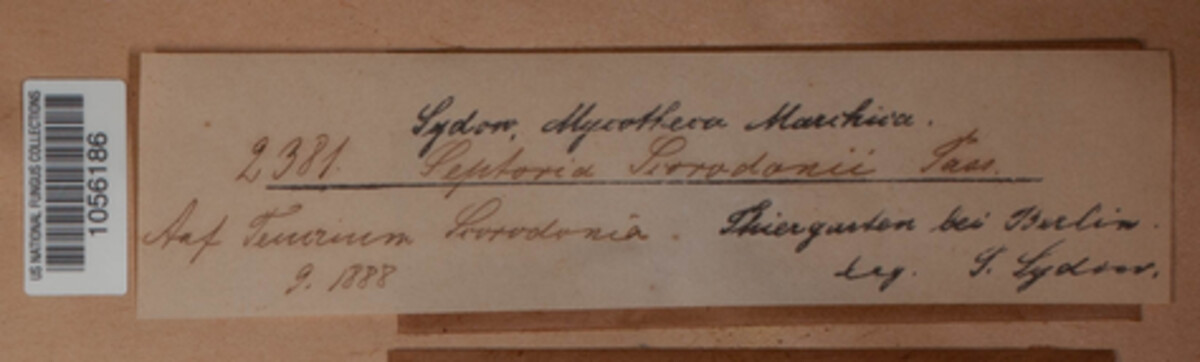 US NATIONAL FUNGUS COLLECTIONS
1056186
Sydow, Mycotheca Marchica.
2381. Septoria Scorodonii Pass.
Auf Teucrium Scorodonia.
9. 1888
Thiergarten bei Berlin.
leg. P. Sydow.